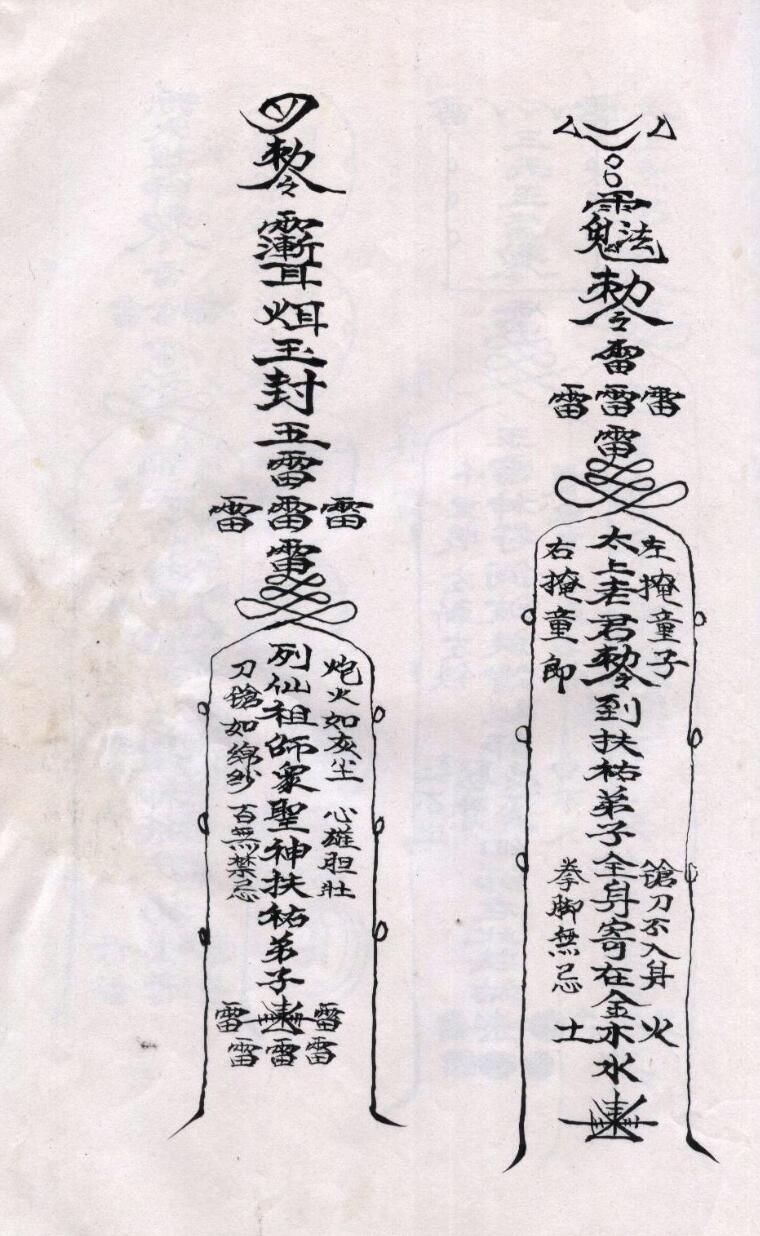 勅令
雷
雷雷雷
雷
左掩童子
太上老君勅令到扶祐弟子全身寄在金木水
火
土
右掩童郎
鎗刀不入身
拳脚無忌
勅令
玉封五雷
雷雷雷
雷
炮火如灰尘 心雄胆壮
列仙祖師衆聖神扶祐弟子
刀鎗如綿紗 百無禁忌
雷 雷
雷雷雷